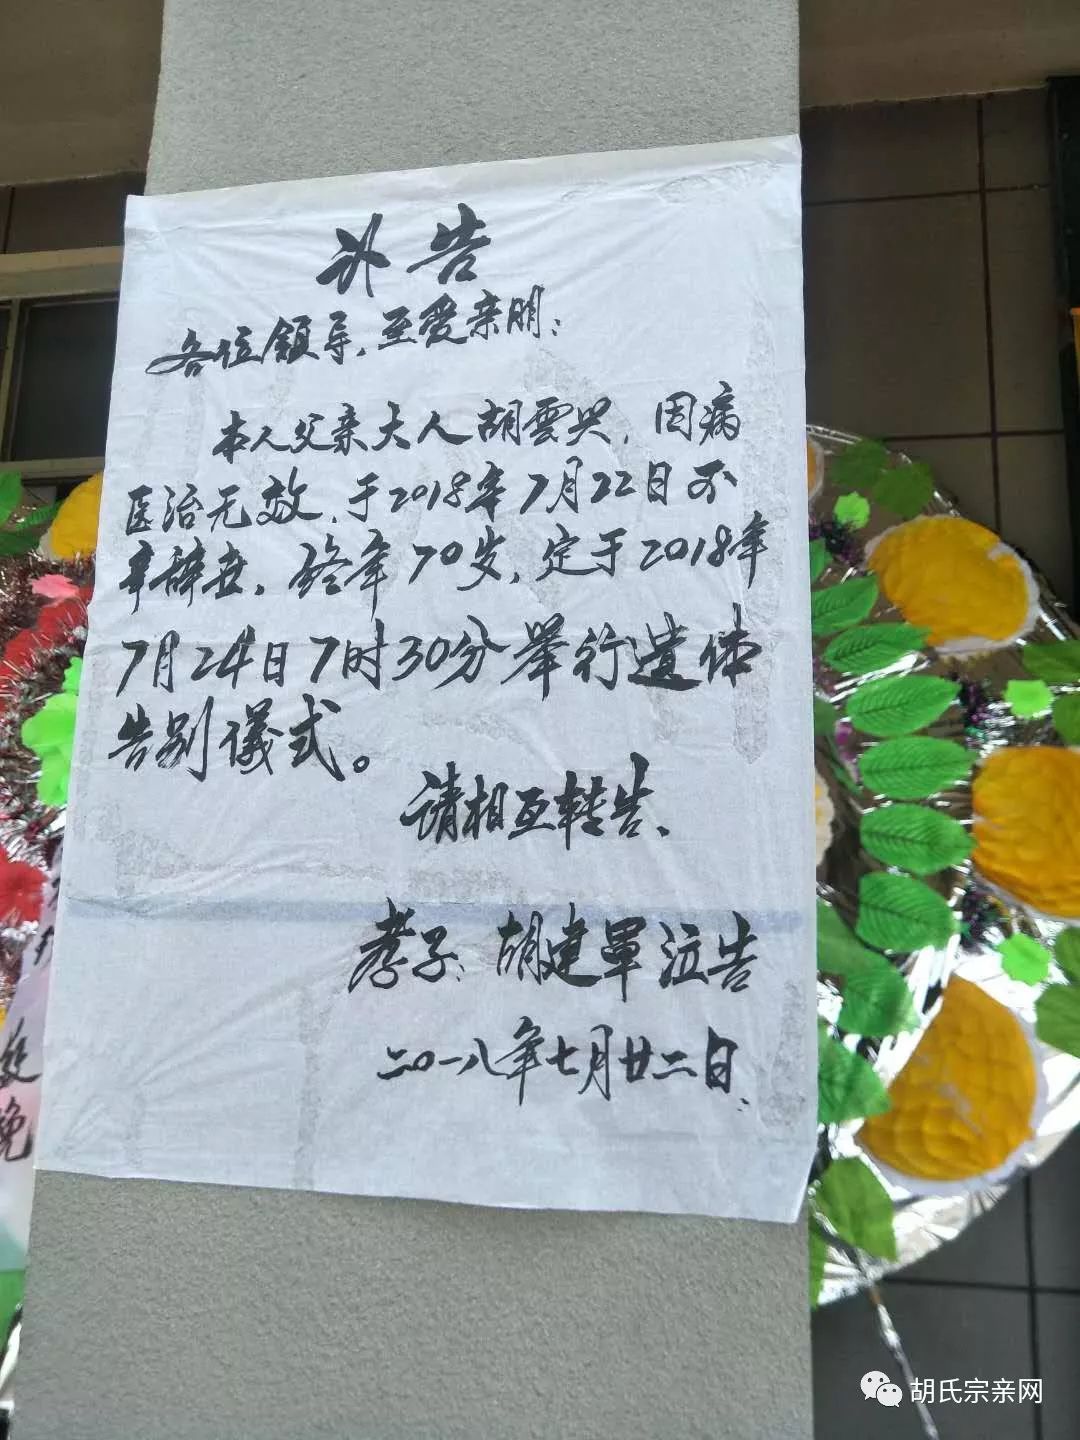 讣告
各位领导、至爱亲朋:
本人父亲大人胡雲兴,因病
医治无效,于2018年7月22日不
幸辞世,终年70岁,定于2018年
7月24日7时30分举行遗体
告别儀式。
请相互转告、
孝子:胡建军泣告
二〇一八年七月廿二日
挽
胡氏宗亲网